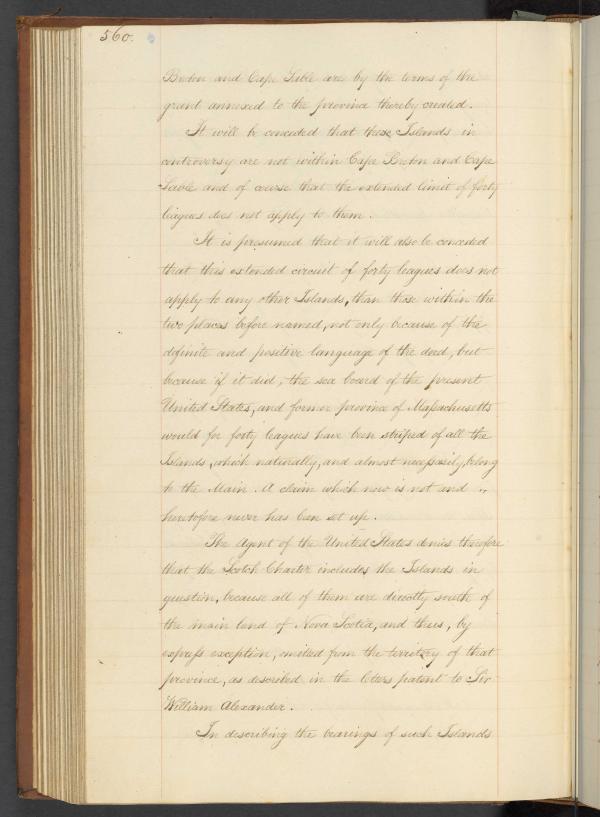 560.
Breton and Cape Sable are by the terms of the
grant annexed to the province thereby created.
It will be conceded that these Islands in
controversy are not within Cape Breton and Cape
Sable and of course that the extended limit of forty
leagues does not apply to them.
It is presumed that it will also be conceded
that this extended circuit of forty leagues does not
apply to any other Islands, than those within the
two places before named, not only because of the
definite and positive language of the deed, but
because if it did, the sea board of the present
United States, and former province of Massachusetts
would for forty leagues have been striped of all the
Islands, which naturally, and almost necessarily, belong
to the Main. A claim which now is not and
heretofore never has been set up.
The Agent of the United States denies therefore
that the Scotch Charter includes the Islands in
question, because all of them are directly south of
the main land of Nova Scotia, and thus, by
express exception, omitted from the territory of that
province, as described in the leters patent to Sir
William Alexander.
In describing the bearings of such Islands